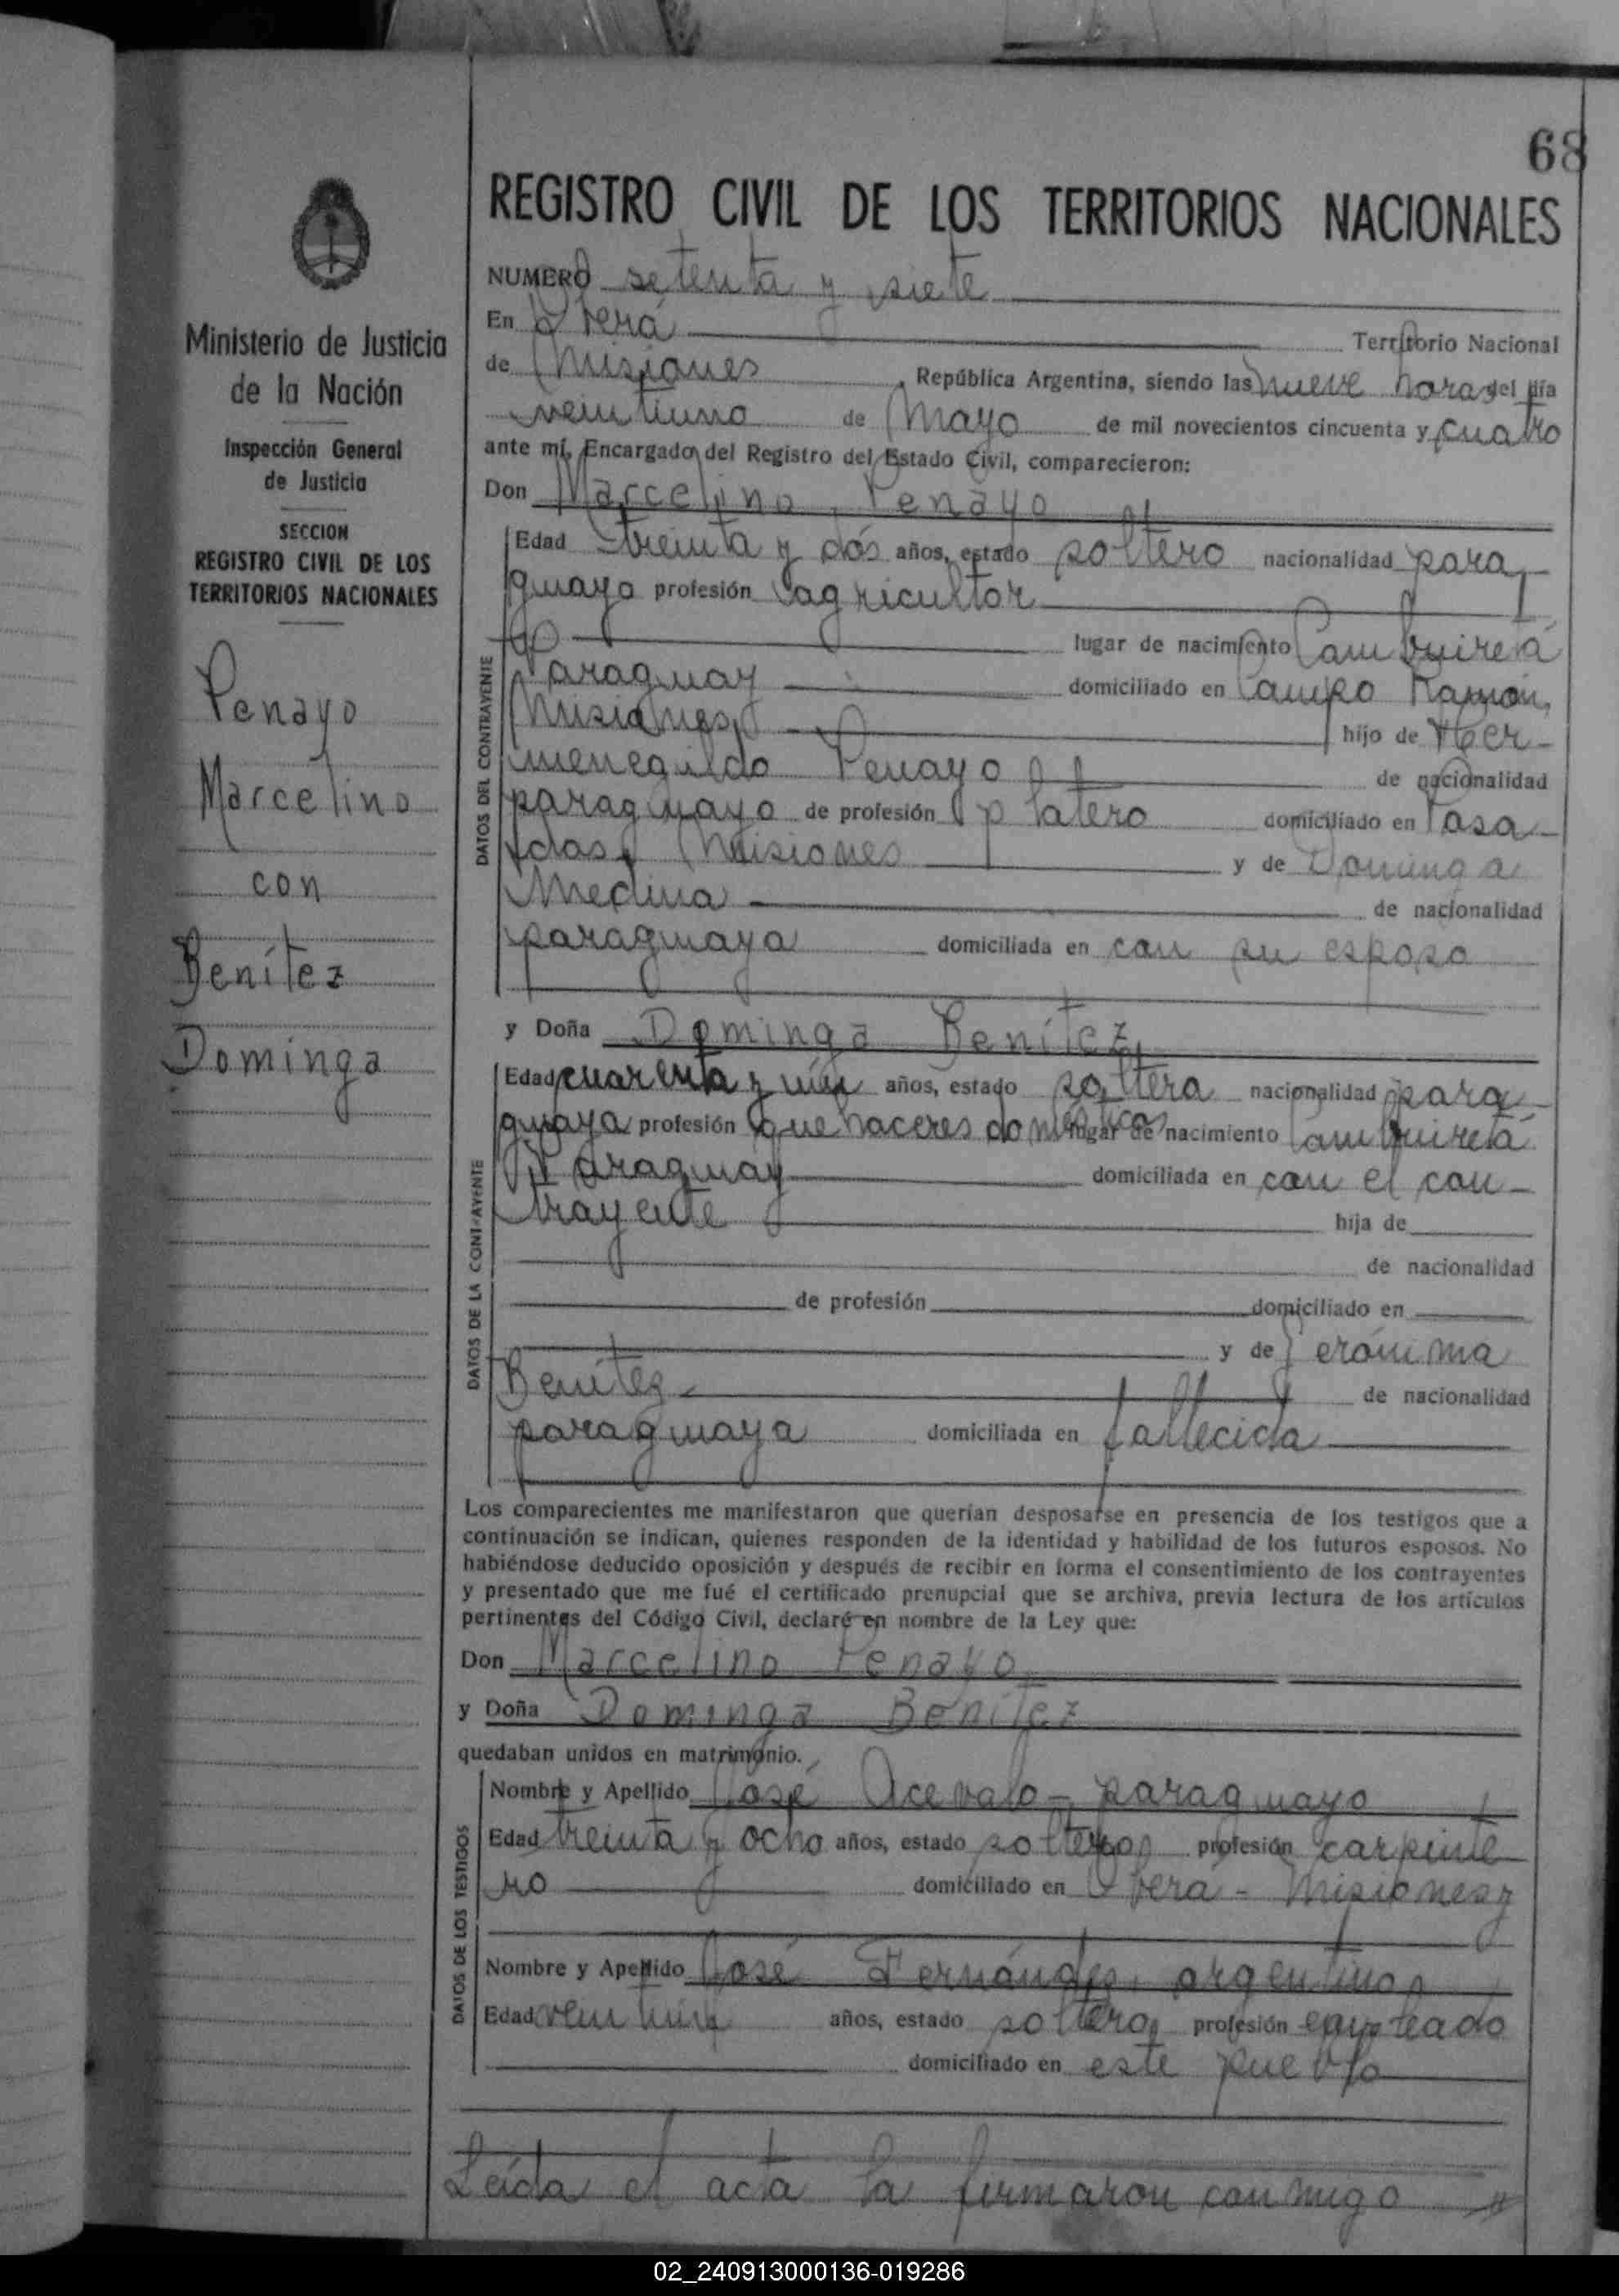 68
REGISTRO CIVIL DE LOS TERRITORIOS NACIONALES
Ministerio de Justicia
de la Nación
Inspección General
de Justicia
SECCION
REGISTRO CIVIL DE LOS
TERRITORIOS NACIONALES
Penayo
Marcelino
con
Benítez
Dominga
NUMERO setenta y siete
En Oberá Territorio Nacional
de Misiones, República Argentina, siendo las nueve horas del día
veintiuno de Mayo de mil novecientos cincuenta y cuatro
ante mí, Encargado del Registro del Estado Civil, comparecieron:
Don Marcelino Penayo
DATOS DEL CONTRAYENTE
Edad treinta y dós años, estado soltero nacionalidad para
guayo profesión agricultor
lugar de nacimiento Cambuiretá
Paraguay domiciliado en Campo Ramón,
Misiones, hijo de Her-
menegildo Penayo de nacionalidad
paraguayo de profesión platero domiciliado en Posa-
das, Misiones y de Dominga
Medina de nacionalidad
paraguaya domiciliada en con su esposo
y Doña Dominga Benítez
DATOS DE LA CONTRAYENTE
Edad cuarenta y un años, estado soltera nacionalidad para-
guaya profesión quehaceres domésticos lugar de nacimiento Cambuiretá
Paraguay domiciliada en con el con-
trayente hija de
de nacionalidad
de profesión domiciliado en
y de Jerónima
Benítez de nacionalidad
paraguaya domiciliada en fallecida
Los comparecientes me manifestaron que querían desposarse en presencia de los testigos que a
continuación se indican, quienes responden de la identidad y habilidad de los futuros esposos. No
habiéndose deducido oposición y después de recibir en forma el consentimiento de los contrayentes
y presentado que me fué el certificado prenupcial que se archiva, previa lectura de los artículos
pertinentes del Código Civil, declaré en nombre de la Ley que:
Don Marcelino Penayo
y Doña Dominga Benítez
quedaban unidos en matrimonio.
DATOS DE LOS TESTIGOS
Nombre y Apellido José Acevalo - paraguayo
Edad treinta y ocho años, estado soltero, profesión carpinte
ro domiciliado en Oberá - Misiones y
Nombre y Apellido José Fernández, argentino,
Edad años, estado soltero, profesión empleado
domiciliado en este pueblo
Leída el acta la firmaron conmigo
02_240913000136-019286